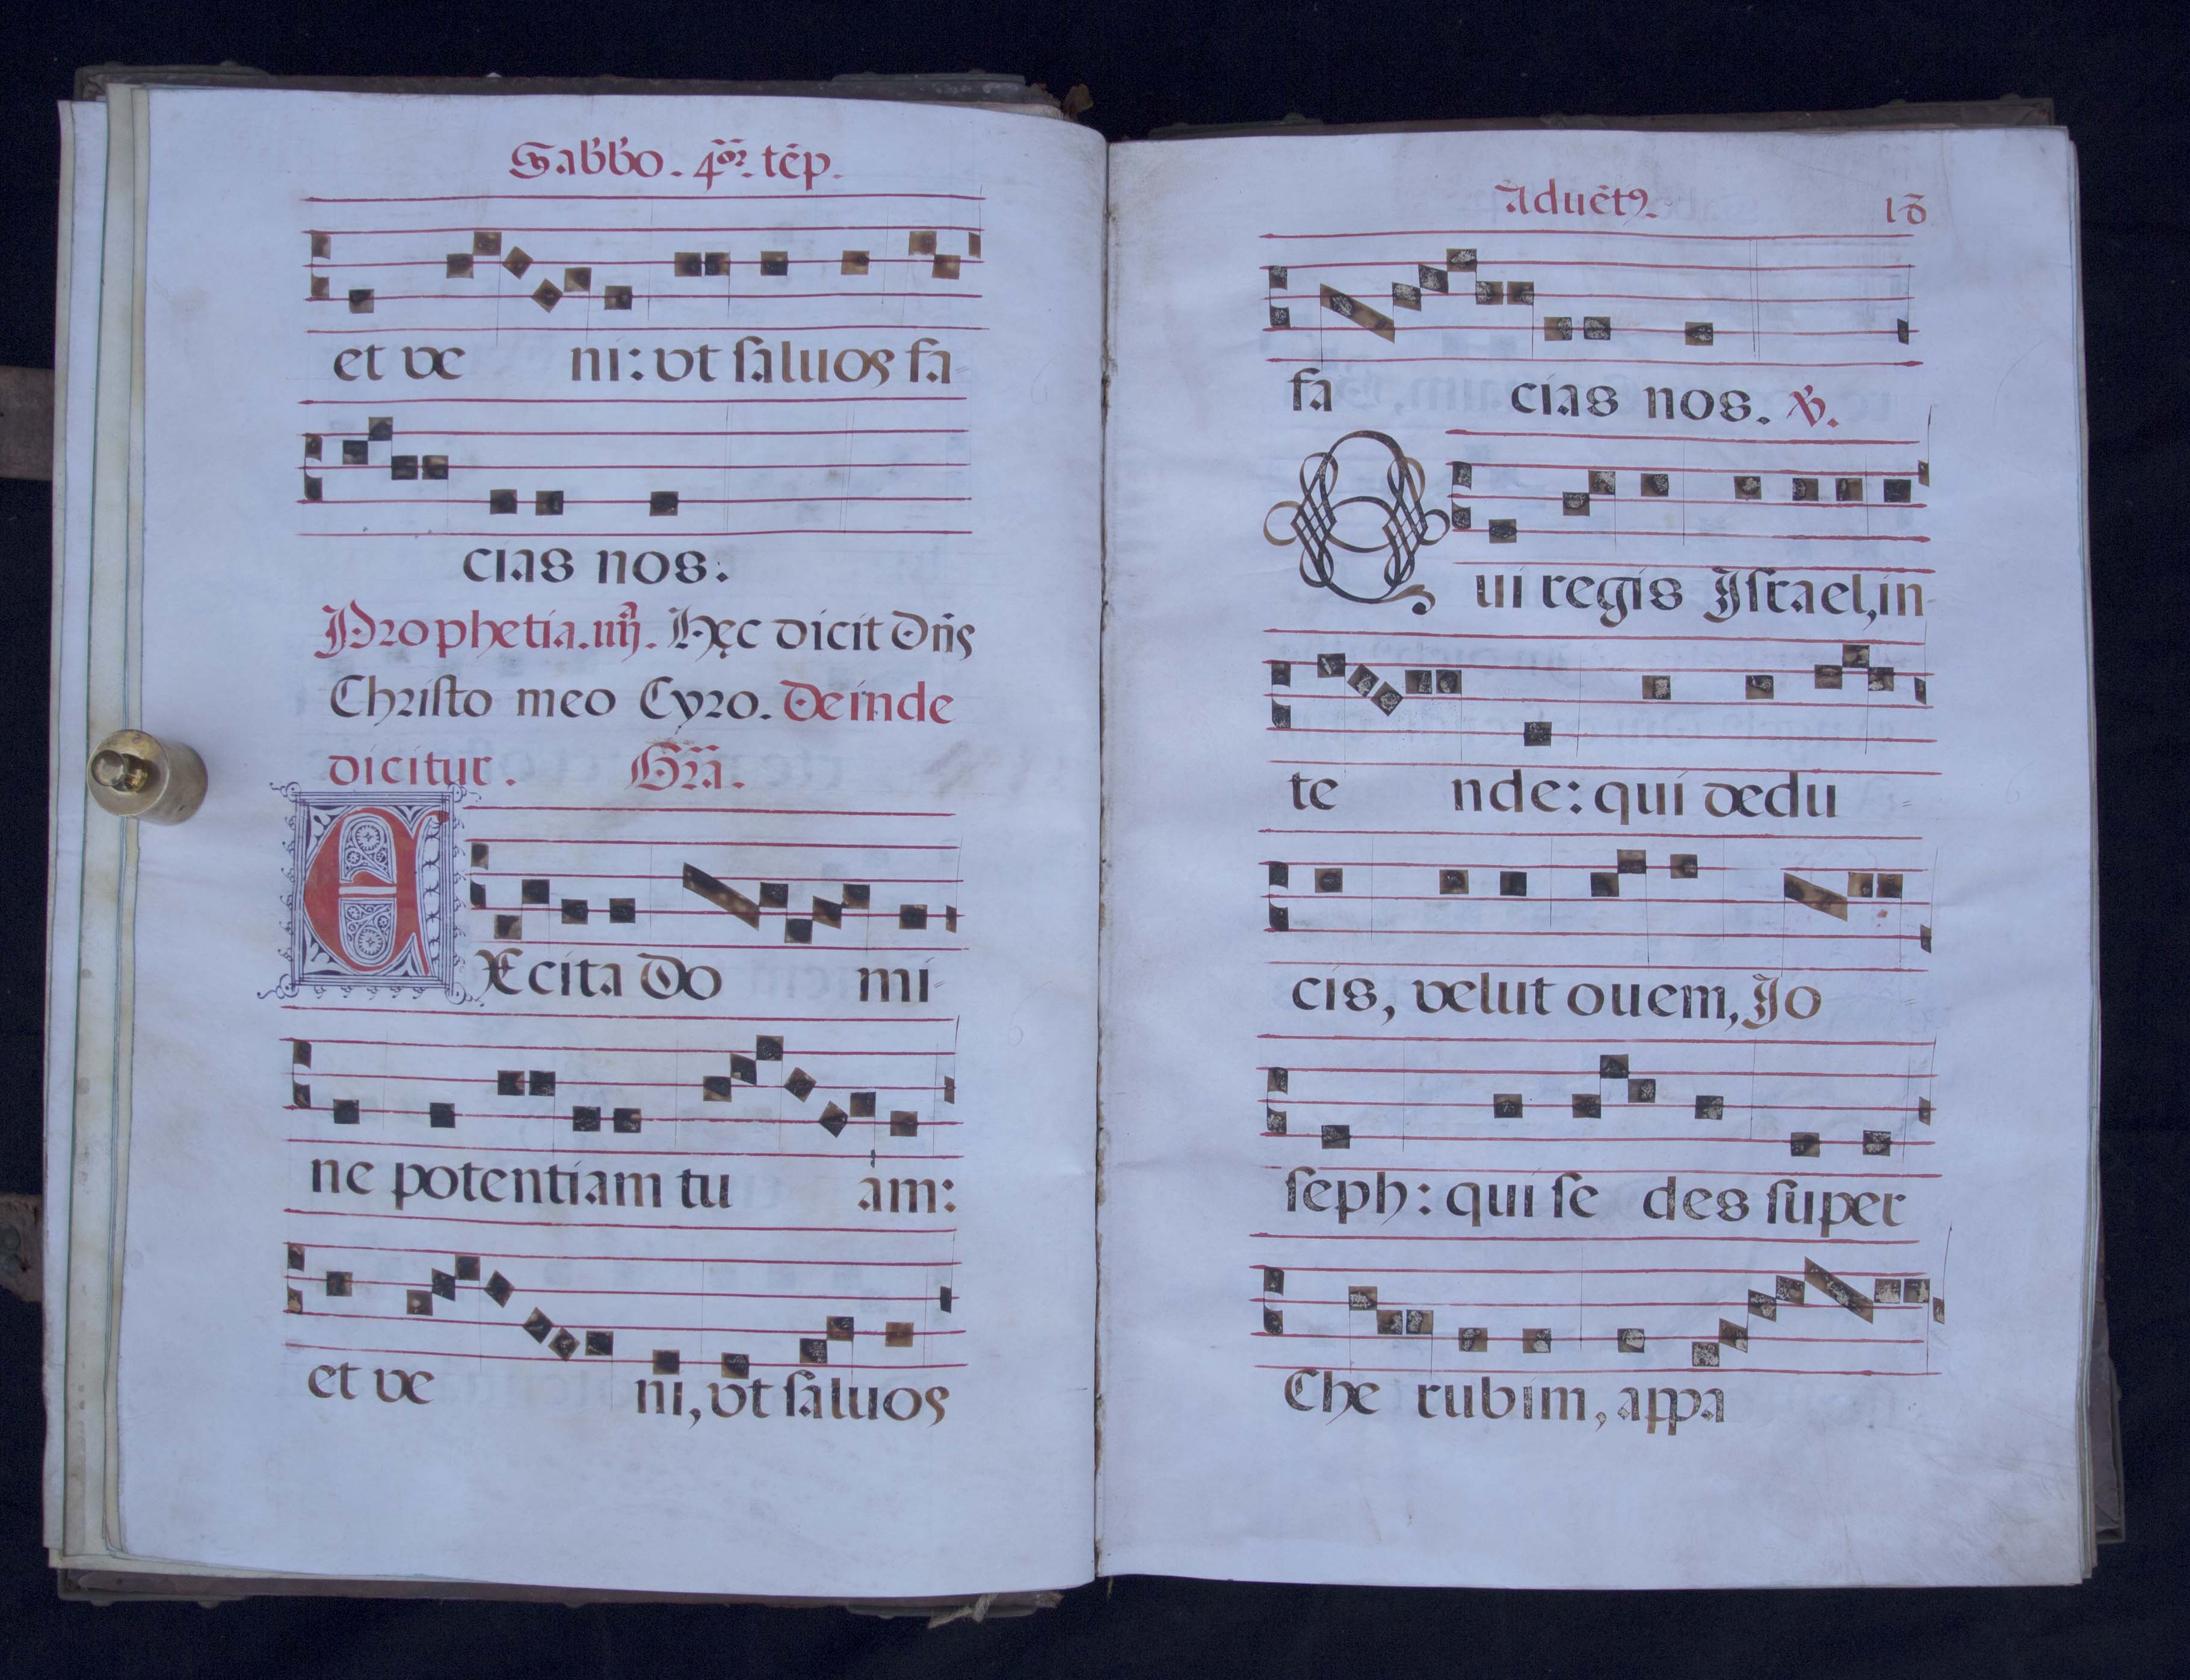 Sab̃bo. 4or. tẽp.
et ve ni: vt ſaluos fa
cias nos.
Prophetia. iiijᵃ. Hęc dicit Dñs
Chriſto meo Cyro. Deinde
dicitur. Gr̃a.
EXcita Do mi-
ne potentiam tu am:
et ve ni, vt ſaluos
Aduẽtꝰ. 18
fa cias nos. ℣.
Qui regis Iſrael, in-
te nde: qui dedu
cis, velut ouem, Jo
ſeph: qui ſe des ſuper
Che rubim, appa